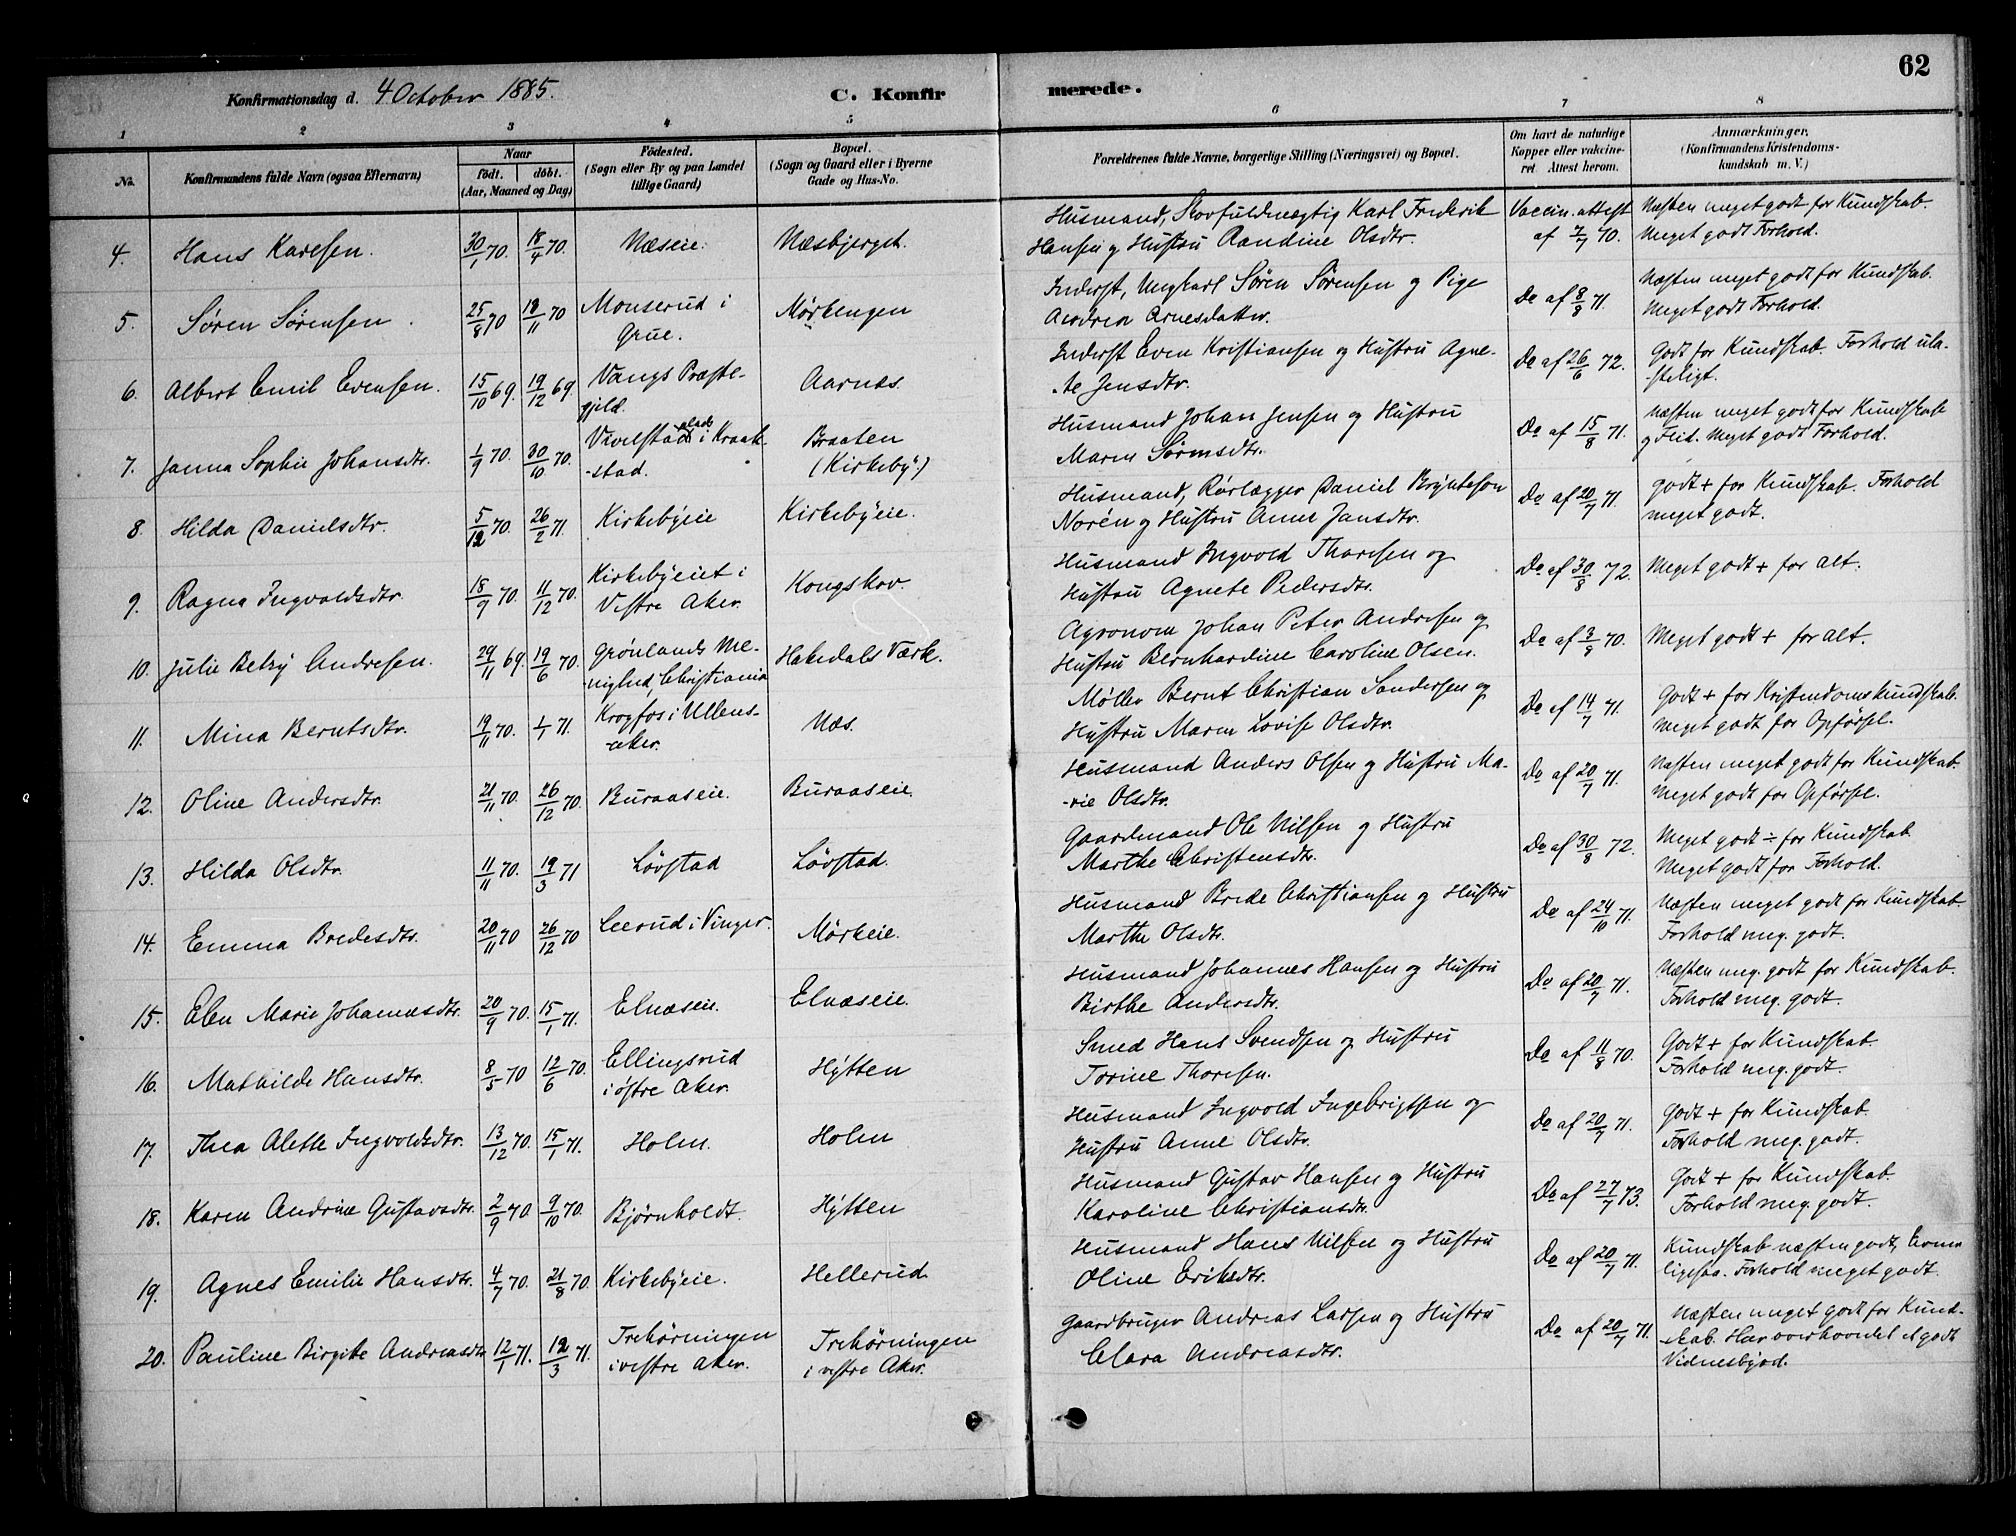 62
Konfirmationsdag d. 4 October 1885. C. Konfir merede.
1 2 3 4 5 6 7 8
No. Konfirmandens fulde Navn (ogsaa Efternavn) Naar födt. döbt. (Aar, Maaned og Dag) Födested. (Sogn eller By og paa Landet tillige Gaard) Bopæl. (Sogn og Gaard eller i Byerne Gade og Hus-No. Forældrenes fulde Navne, borgerlige Stilling (Næringsvei) og Bopæl. Om havt de naturlige Kopper eller vakcineret. Attest herom. Anmærkninger. (Konfirmandens Kristendomskundskab m. V.)
4. Hans Karlsen. 30/1 70. 18/4 70. Næseie. Næsbjerget. Husmand, Skovfuldmægtig Karl Frederik Vaccin. attest Næsten meget godt for Kundskab.
Hansen og Hustru Randine Olsdtr. af 7/7 70. Meget godt Forhold.
5. Søren Sørensen. 25/8 70 18/11 70 Monserud i Mørkengen Inderst, Ungkarl Søren Sørensen og Pige Do af 8/8 71. Næsten meget godt for Kundskab.
Grue. Andrea Arnesdatter. Meget godt Forhold.
6. Albert Emil Evensen. 15/10 69. 19/12 69. Vangs Præste- Aarnæs. Inderst Even Kristiansen og Hustru Agne- Do af 26/6 72. Godt for Kundskab. Forhold ula-
gjeld. te Jensdtr. steligt.
7. Janna Sophie Johansdtr. 1/9 70. 30/10 70. Vevelstad plads i Kraak- Braaten Husmand Johan Jensen og Hustru Do af 15/8 71. Næsten meget godt for Kundskab
stad. (Kirkeby.) Maren Sørensdtr. og Flid. Meget godt Forhold.
8. Hilda Danielsdtr. 5/12 70. 26/2 71. Kirkebyeie Kirkebyeie. Husmand, Rørlægger Daniel Brynteson Do af 20/7 71. godt + for Kundskab. Forhold
Norén og Hustru Anne Jansdtr. meget godt.
9. Ragna Ingvoldsdtr. 18/9 70. 11/12 70. Kirkebyeiet i Kongskov. Husmand Ingvold Thoresen og Do af 30/8 72. Meget godt + for alt.
Vestre Aker. Hustru Agnete Pedersdtr.
10. Julie Betzy Andresen. 29/11 69. 19/6 70. Grønlands Me- Hakedals Værk. Agronom Johan Peter Andresen og Do af 3/8 70. Meget godt + for alt.
nighed, Christiania Hustru Bernhardine Caroline Olsen.
11. Mina Berntsdtr. 19/11 70. 1/1 71. Krogfos i Ullens- Næs. Møller Bernt Christian Sandersen og Do af 14/7 71. Godt + for Kristendomskundskab.
aker. Hustru Maren Lovise Olsdtr. Meget godt for Opførsel.
12. Oline Andersdtr. 21/11 70. 26/12 70. Buraaseie. Buraaseie. Husmand Anders Olsen og Hustru Ma- Do af 20/7 71. Næsten meget godt for Kundskab.
rie Olsdtr. Meget godt for Opførsel.
13. Hilda Olsdtr. 11/11 70. 19/3 71 Løvstad Løvstad. Gaardmand Ole Nilsen og Hustru Do af 30/8 72. Meget godt ÷ for Kundskab.
Marthe Christensdtr. Meget godt for Forhold.
14. Emma Bredesdtr. 20/11 70 26/12 70 Leerud i Vinger. Mørkeie. Husmand Brede Christiansen og Hustru Do af 24/10 71. Næsten meget godt for Kundskab.
Marthe Olsdtr. Forhold meg. godt.
15. Elen Marie Johannesdtr. 20/9 70. 15/1 71. Elnæseie. Elnæseie. Husmand Johannes Hansen og Hustru Do af 20/7 71. Næsten meg. godt for Kundskab.
Birthe Andersdtr. Forhold meg. godt.
16. Mathilde Hansdtr. 8/5 70 12/6 70. Ellingsrud Hytten Smed Hans Svendsen og Hustru Do af 11/8 70. Godt + for Kundskab.
i østre Aker. Torine Thoresen. Forhold meg. godt.
17. Thea Alette Ingvoldsdtr. 13/12 70. 15/1 71. Holm. Holm Husmand Ingvold Ingebrigtsen og Do af 20/7 71. Godt + for Kundskab.
Hustru Anne Olsdtr. Forhold meg. godt.
18. Karen Andrine Gustavsdtr. 2/9 70. 9/10 70. Bjørnholdt. Hytten Husmand Gustav Hansen og Hustru Do af 27/7 73. Godt + for Kundskab.
Karoline Christiansdtr. Forhold meg. godt.
19. Agnes Emilie Hansdtr. 4/7 70. 21/8 70. Kirkebyeie. Hellerud. Husmand Hans Nilsen og Hustru Do af 20/7 71. Kundskab næsten godt, Evner
Oline Eriksdtr. ligesaa. Forhold meget godt.
20. Pauline Birgitte Andreasdtr. 12/1 71. 12/3 71. Trehørningen Trehørningen Gaardbruger Andreas Larsen og Hustru Do af 20/7 71. Næsten meget godt for Kund-
i vestre Aker. i vestre Aker. Clara Andreasdtr. skab. Har overhovedet et godt
Vidnesbyrd.